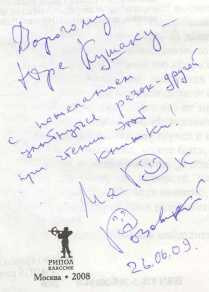 Дорогому
Юре Кушаку —
с пожеланием
улыбнуться разок-другой
при чтении этой
книжки!
Ма к
Розовский
26.06.09.
РИПОЛ
КЛАССИК
Москва • 2008